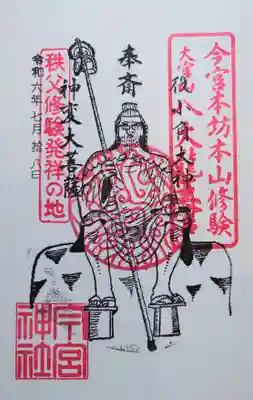 今宮本坊本山修験
役小角大神
奉斎
神変大菩薩
秩父修験発祥の地
令和六年七月拾八日
今宮神社